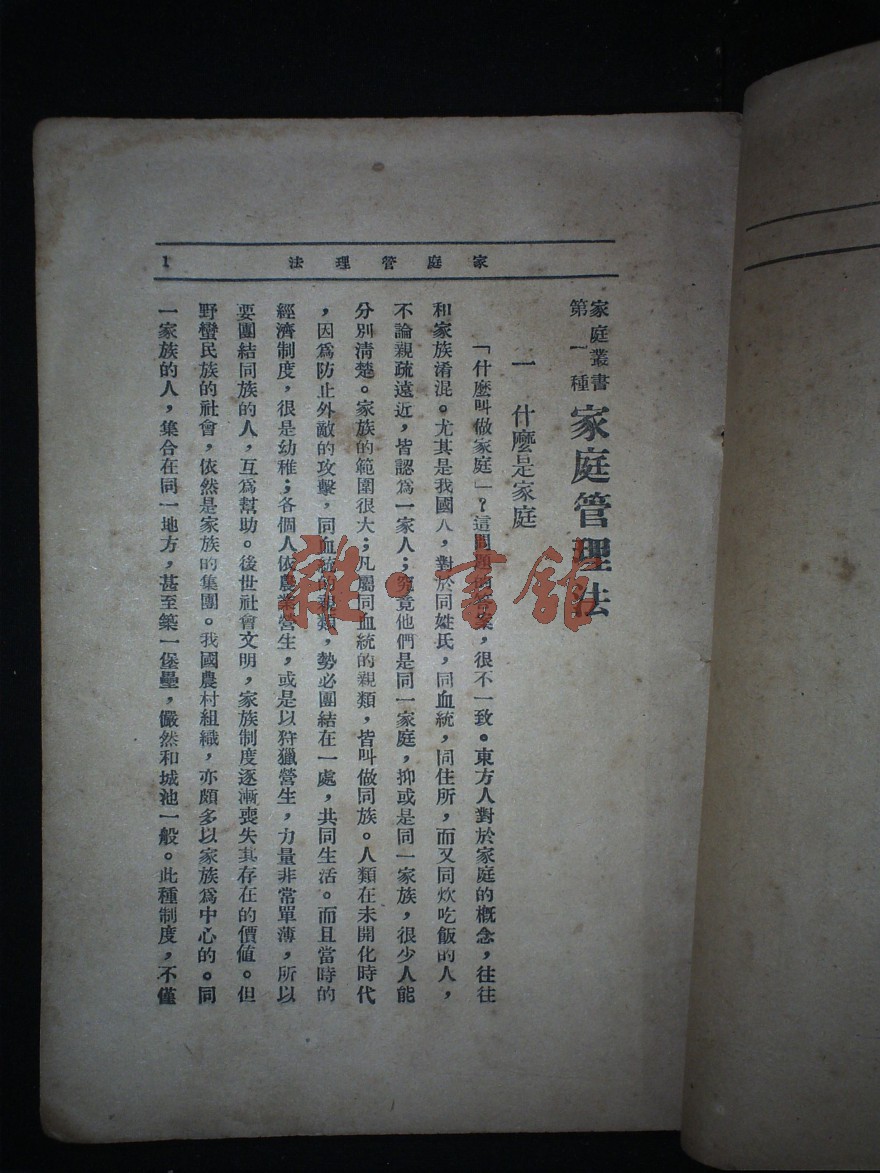 家庭管理法 1
家庭叢書
第一種
家庭管理法
一 什麼是家庭
「什麼叫做家庭」?這問題的答案,很不一致。東方人對於家庭的概念,往往
和家族淆混。尤其是我國人,對於同姓氏,同血統,同住所,而又同炊吃飯的人,
不論親疏遠近,皆認爲一家人;究竟他們是同一家庭,抑或是同一家族,很少人能
分別清楚。家族的範圍很大;凡屬同血統的親類,皆叫做同族。人類在未開化時代
,因爲防止外敵的攻擊,同血統的親類,勢必團結在一處,共同生活。而且當時的
經濟制度,很是幼稚;各個人依農業營生,或是以狩獵營生,力量非常單薄,所以
要團結同族的人,互爲幫助。後世社會文明,家族制度逐漸喪失其存在的價值。但
野蠻民族的社會,依然是家族的集團。我國農村組織,亦頗多以家族爲中心的。同
一家族的人,集合在同一地方,甚至築一堡壘,儼然和城池一般。此種制度,不僅
雜·書館